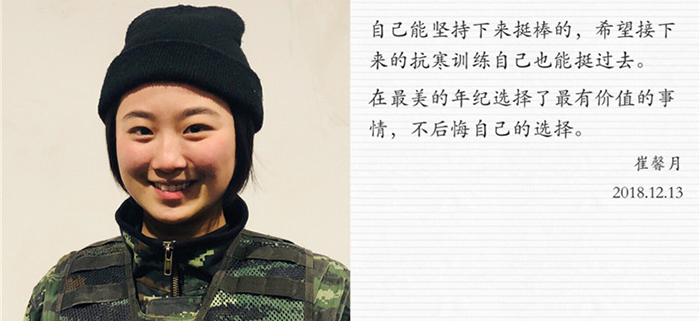 自己能坚持下来挺棒的，希望接下
来的抗寒训练自己也能挺过去。
在最美的年纪选择了最有价值的事
情，不后悔自己的选择。
崔馨月
2018.12.13